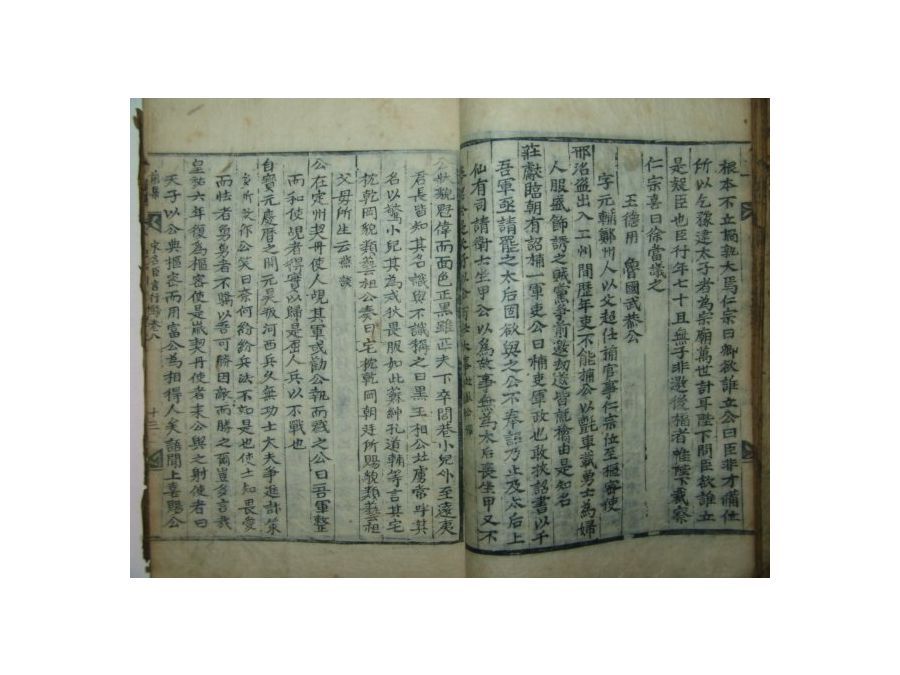 根本不立禍孰大焉仁宗曰卿欲誰立公曰臣非才備位
所以乞豫建太子者為宗廟萬世計耳陛下問臣欲誰立
是疑臣也臣行年七十且無子非邀後福者帷陛下裁察
仁宗喜曰徐當議之
王德用 魯國武恭公
字元輔鄭州人以父超任補官事仁宗位至樞密使
邢洺盜出入二州間歷年吏不能捕公以氈車載勇士為婦
人服盛飾誘之賊黨爭前邀刼遂皆就擒由是知名
莊獻臨朝有詔補一軍吏公曰補吏軍政也敢挾詔書以干
吾軍亟請罷之太后固欲與之公不奉詔乃止及太后上
仙有司請衛士坐甲公以為故事無為太后喪坐甲又不
公狀貌魁偉而面色正黑雖匹夫下卒閭巷小兒外至遠夷
君長皆知其名識與不識稱之曰黑王相公北虜常呼其
名以驚小兒其為戎狄畏服如此蘇紳孔道輔等言其宅
枕乾岡貌類藝祖公奏曰宅枕乾岡朝廷所賜貌類藝祖
父母所生云
公在定州契丹使人覘其軍或勸公執而戮之公曰吾軍整
而和使覘者得實以歸是屈人兵以不戰也
自寶元慶曆之間元昊叛河西兵久無功士大夫爭進計策
公笑曰奈何紛紛兵法不如是也使士知畏愛
而怯者勇勇者不驕以吾可勝因敵而勝之爾豈多言哉
皇祐六年復為樞密使是歲契丹使者來公與之射使者曰
天子以公典樞密而用富公為相得人矣語聞上喜賜公
宋名臣言行錄卷八
十三